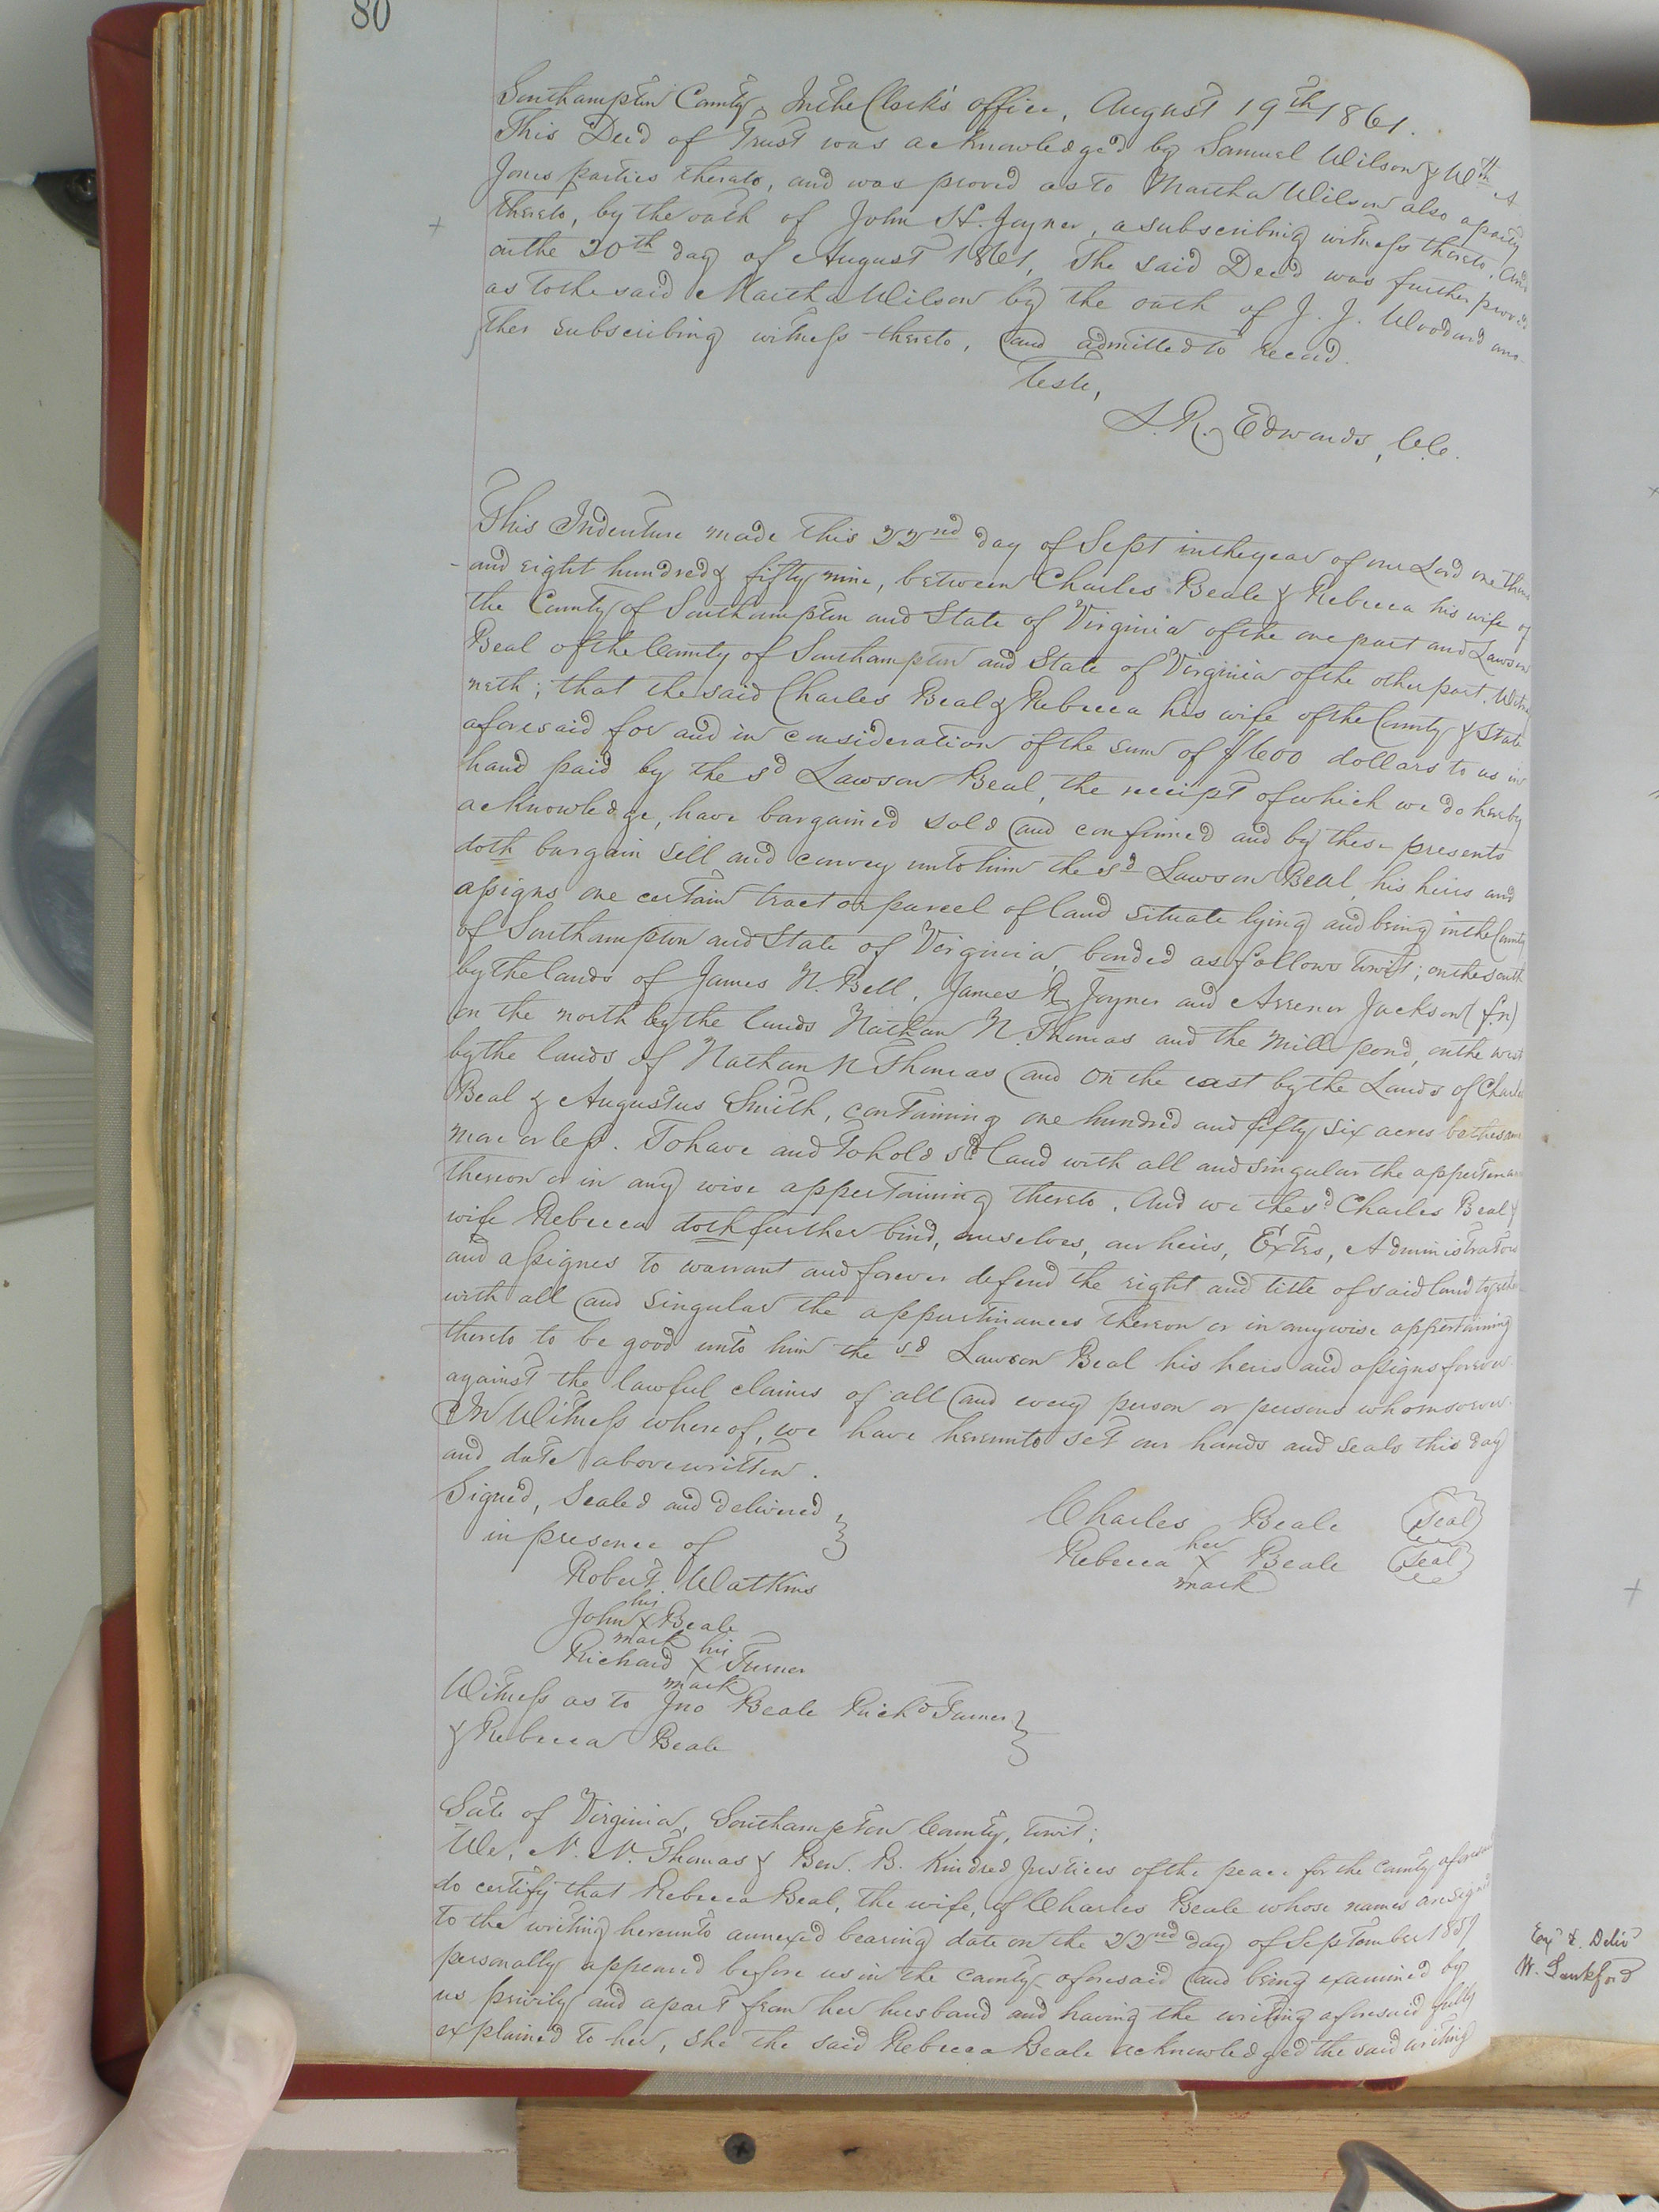 80
Southampton County, In the Clerk's office, August 19th 1861.
This Deed of Trust was acknowledged by Samuel Wilson & Wm A
Jones parties thereto, and was proved as to Martha Wilson also a party
thereto, by the oath of John H. Joyner, a subscribing witness thereto. And
on the 20th day of August 1861, The said Deed was further proved
as to the said Martha Wilson by the oath of J. J. Woodard ano-
ther subscribing witness thereto, and admitted to record.
Teste,
L. R. Edwards, C.C.
This Indenture made this 22nd day of Sept in the year of our Lord one thous
and eight hundred & fifty nine, between Charles Beale & Rebecca his wife of
the County of Southampton and State of Virginia of the one part and Lawson
Beal of the County of Southampton and State of Virginia of the other part. Witnes
neth; that the said Charles Beal & Rebecca his wife of the County & State
aforesaid for and in consideration of the sum of $600 dollars to us in
hand paid by the sd Lawson Beal, the receipt of which we do hereby
acknowledge, have bargained sold and confirmed and by these presents
doth bargain sell and convey unto him the sd Lawson Beal, his heirs and
assigns one certain tract or parcel of land situate lying and being in the County
of Southampton and State of Virginia, bonded as follows towit; on the south
by the lands of James N. Bell, James R. Joyner and Arrenor Jackson (f.n)
on the north by the lands Nathan N. Thomas and the mill pond, on the west
by the lands of Nathan N Thomas and on the east by the Lands of Charles
Beal & Augustus Smith, containing one hundred and fifty six acres be the same
more or less. To have and to hold sd land with all and singular the appertenan
thereon or in any wise appertaining thereto. And we the sd Charles Beal &
wife Rebecca doth further bind, ourselves, our heirs, Extrs, Administrators
and assignes to warrant and forever defend the right and title of said land together
with all and singular the appurtinances thereon or in anywise appertaining
thereto to be good unto him the sd Lawson Beal his heirs and assigns forever
against the lawful claims of all and every person or persons whomsoever.
In Witness whereof, we have hereunto set our hands and seals this day
and date above written.
Signed, Sealed and delivered
in presence of
Charles Beale (Seal)
her
Rebecca X Beale (Seal)
mark
Robert Watkins
his
John X Beale
mark
his
Richard X Turner
mark
Witness as to Jno Beale Richd Turner
& Rebecca Beale
Sate of Virginia, Southampton County, towit;
We, N. N. Thomas & Ben. B. Kindred Justices of the peace for the County aforesaid
do certify that Rebecca Beal, the wife, of Charles Beale whose names are signed
to the writing hereunto annexed bearing date on the 22nd day of September 1859
personally appeared before us in the county aforesaid and being examined by
us privily and apart from her husband and having the writing aforesaid fully
explained to her, she the said Rebecca Beale acknowledged the said writing
Exd & Delivd
W. Lankford